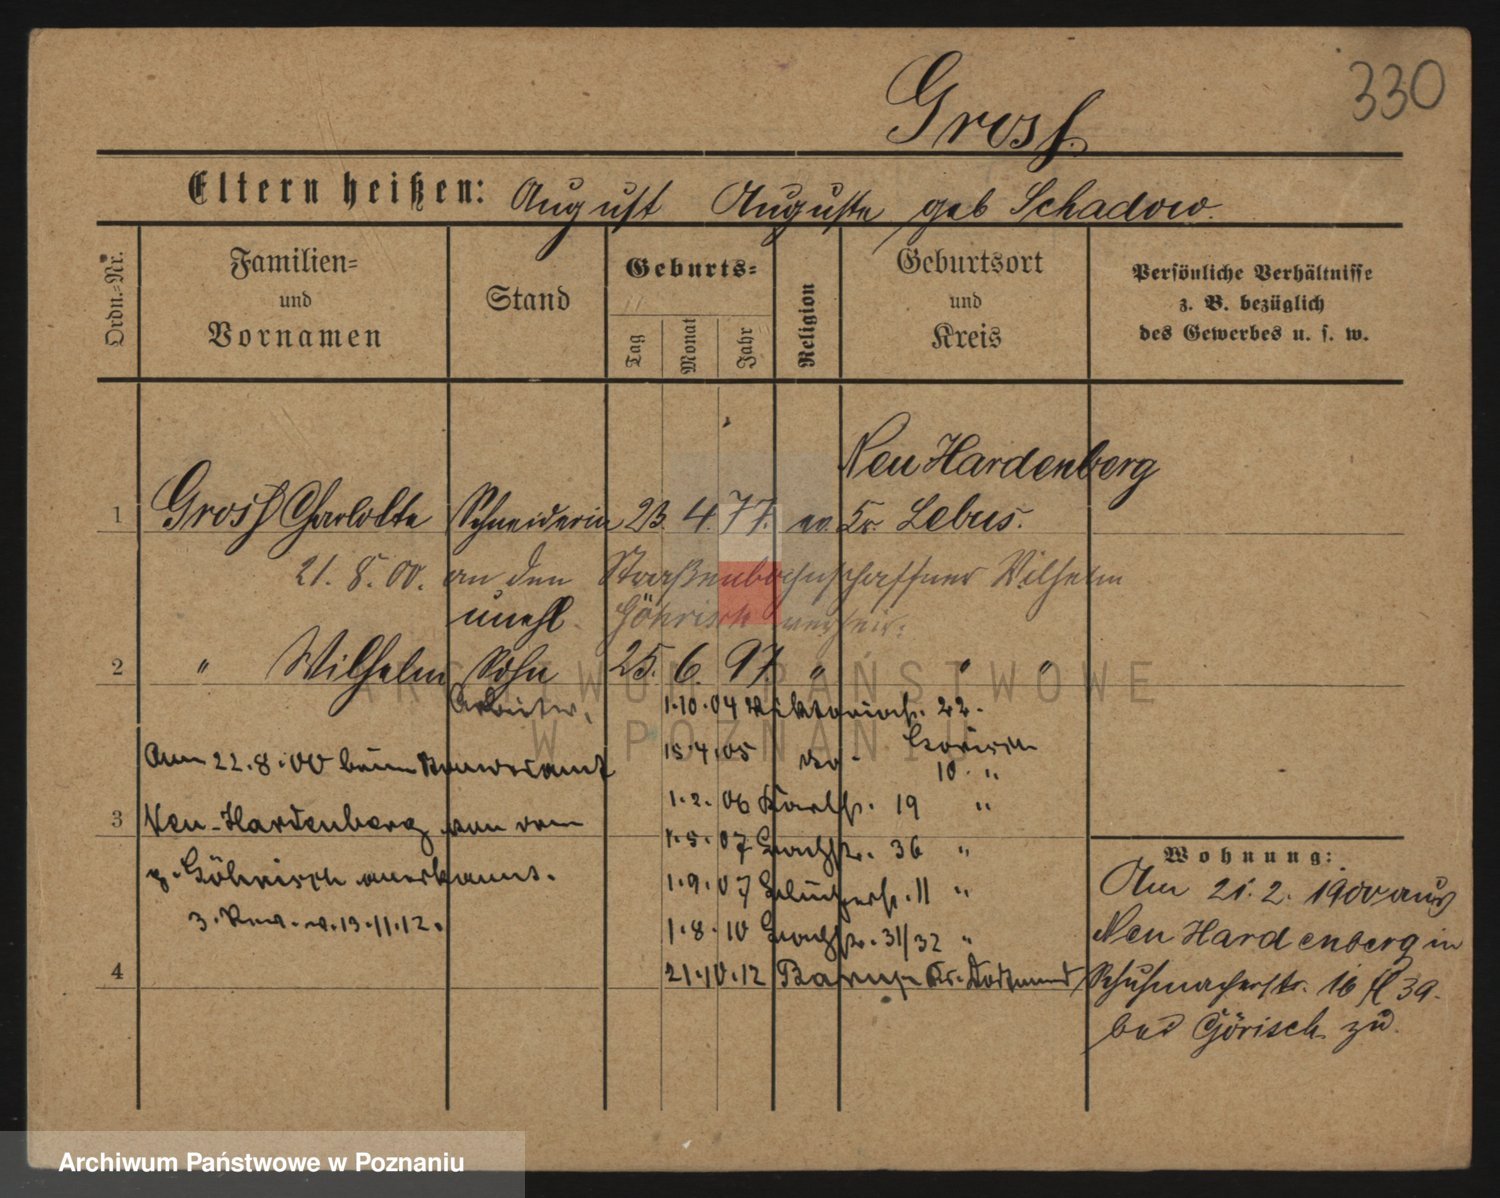 330
Gross.
Eltern heißen: August Auguste geb Schadow.
Ordn.-Nr.
Familien-
und
Vornamen
Stand
Geburts-
Tag
Monat
Jahr
Religion
Geburtsort
und
Kreis
Persönliche Verhältnisse
z. B. bezüglich
des Gewerbes u. s. w.
Neu Hardenberg
1 Gross Charlotte Schneiderin 23. 4. 77. ev. Kr. Lebus.
21. 8. 00. an den Straßenbahnschaffner Wilhelm
Göhrisch verheir.
unehl.
2 " Wilhelm Sohn 25. 6. 97. " " "
Arbeiter.
1.10.04 Viktoriast. 22.
15.4.05 Görisch
10. "
1.2.06 Karlst. 19 "
1.5.07 36 "
1.9.07 11 "
1.8.10 31/32 "
21.10.12 Kr. Dortmund
Am 22.8.00 beim Standesamt
3 Neu-Hardenberg von dem
p. Göhrisch anerkannt.
3. v. 13.11.12.
4
Wohnung:
Am 21. 2. 1900 aus
Neu Hardenberg in
Schuhmacherstr. 16 39.
bei Görisch zu.
ARCHIWUM PAŃSTWOWE
W POZNANIU
Archiwum Państwowe w Poznaniu